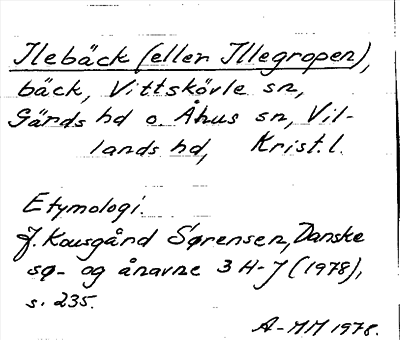 Ilebäck (eller Illegropen),
bäck, Vittskövle sn,
Gärds hd o. Åhus sn, Vil-
lands hd, Krist. l.
Etymologi.
J. Kousgård Sørensen, Danske
sø- og ånavne 3 H-J (1978),
s. 235.
A-MM 1978.